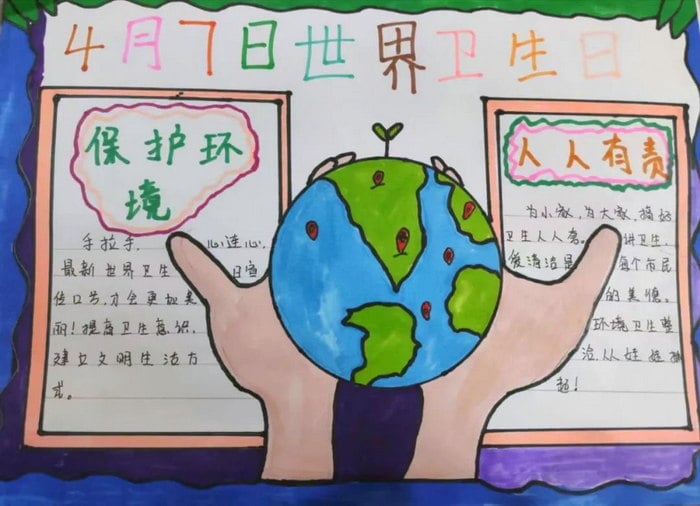 4月7日世界卫生日
保护环
境
手拉手, 心连心,
最新世界卫生 日宣
传口号,才会更加美
丽!提高卫生意识,
建立文明生活方
式。
人人有责
为小家,为大家,搞好
卫生人人 讲卫生,
爱清洁是 每个市民
的美德。
环境卫生整
治,从娃娃抓
起!